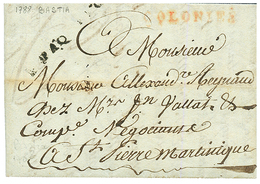 1788 BASTIA
COLONIES
PAQ
Monsieur
Monsieur Allexandre Reynaud
chez Mrs Jn Vallat &
Compe Négociants
a St Pierre Martinique